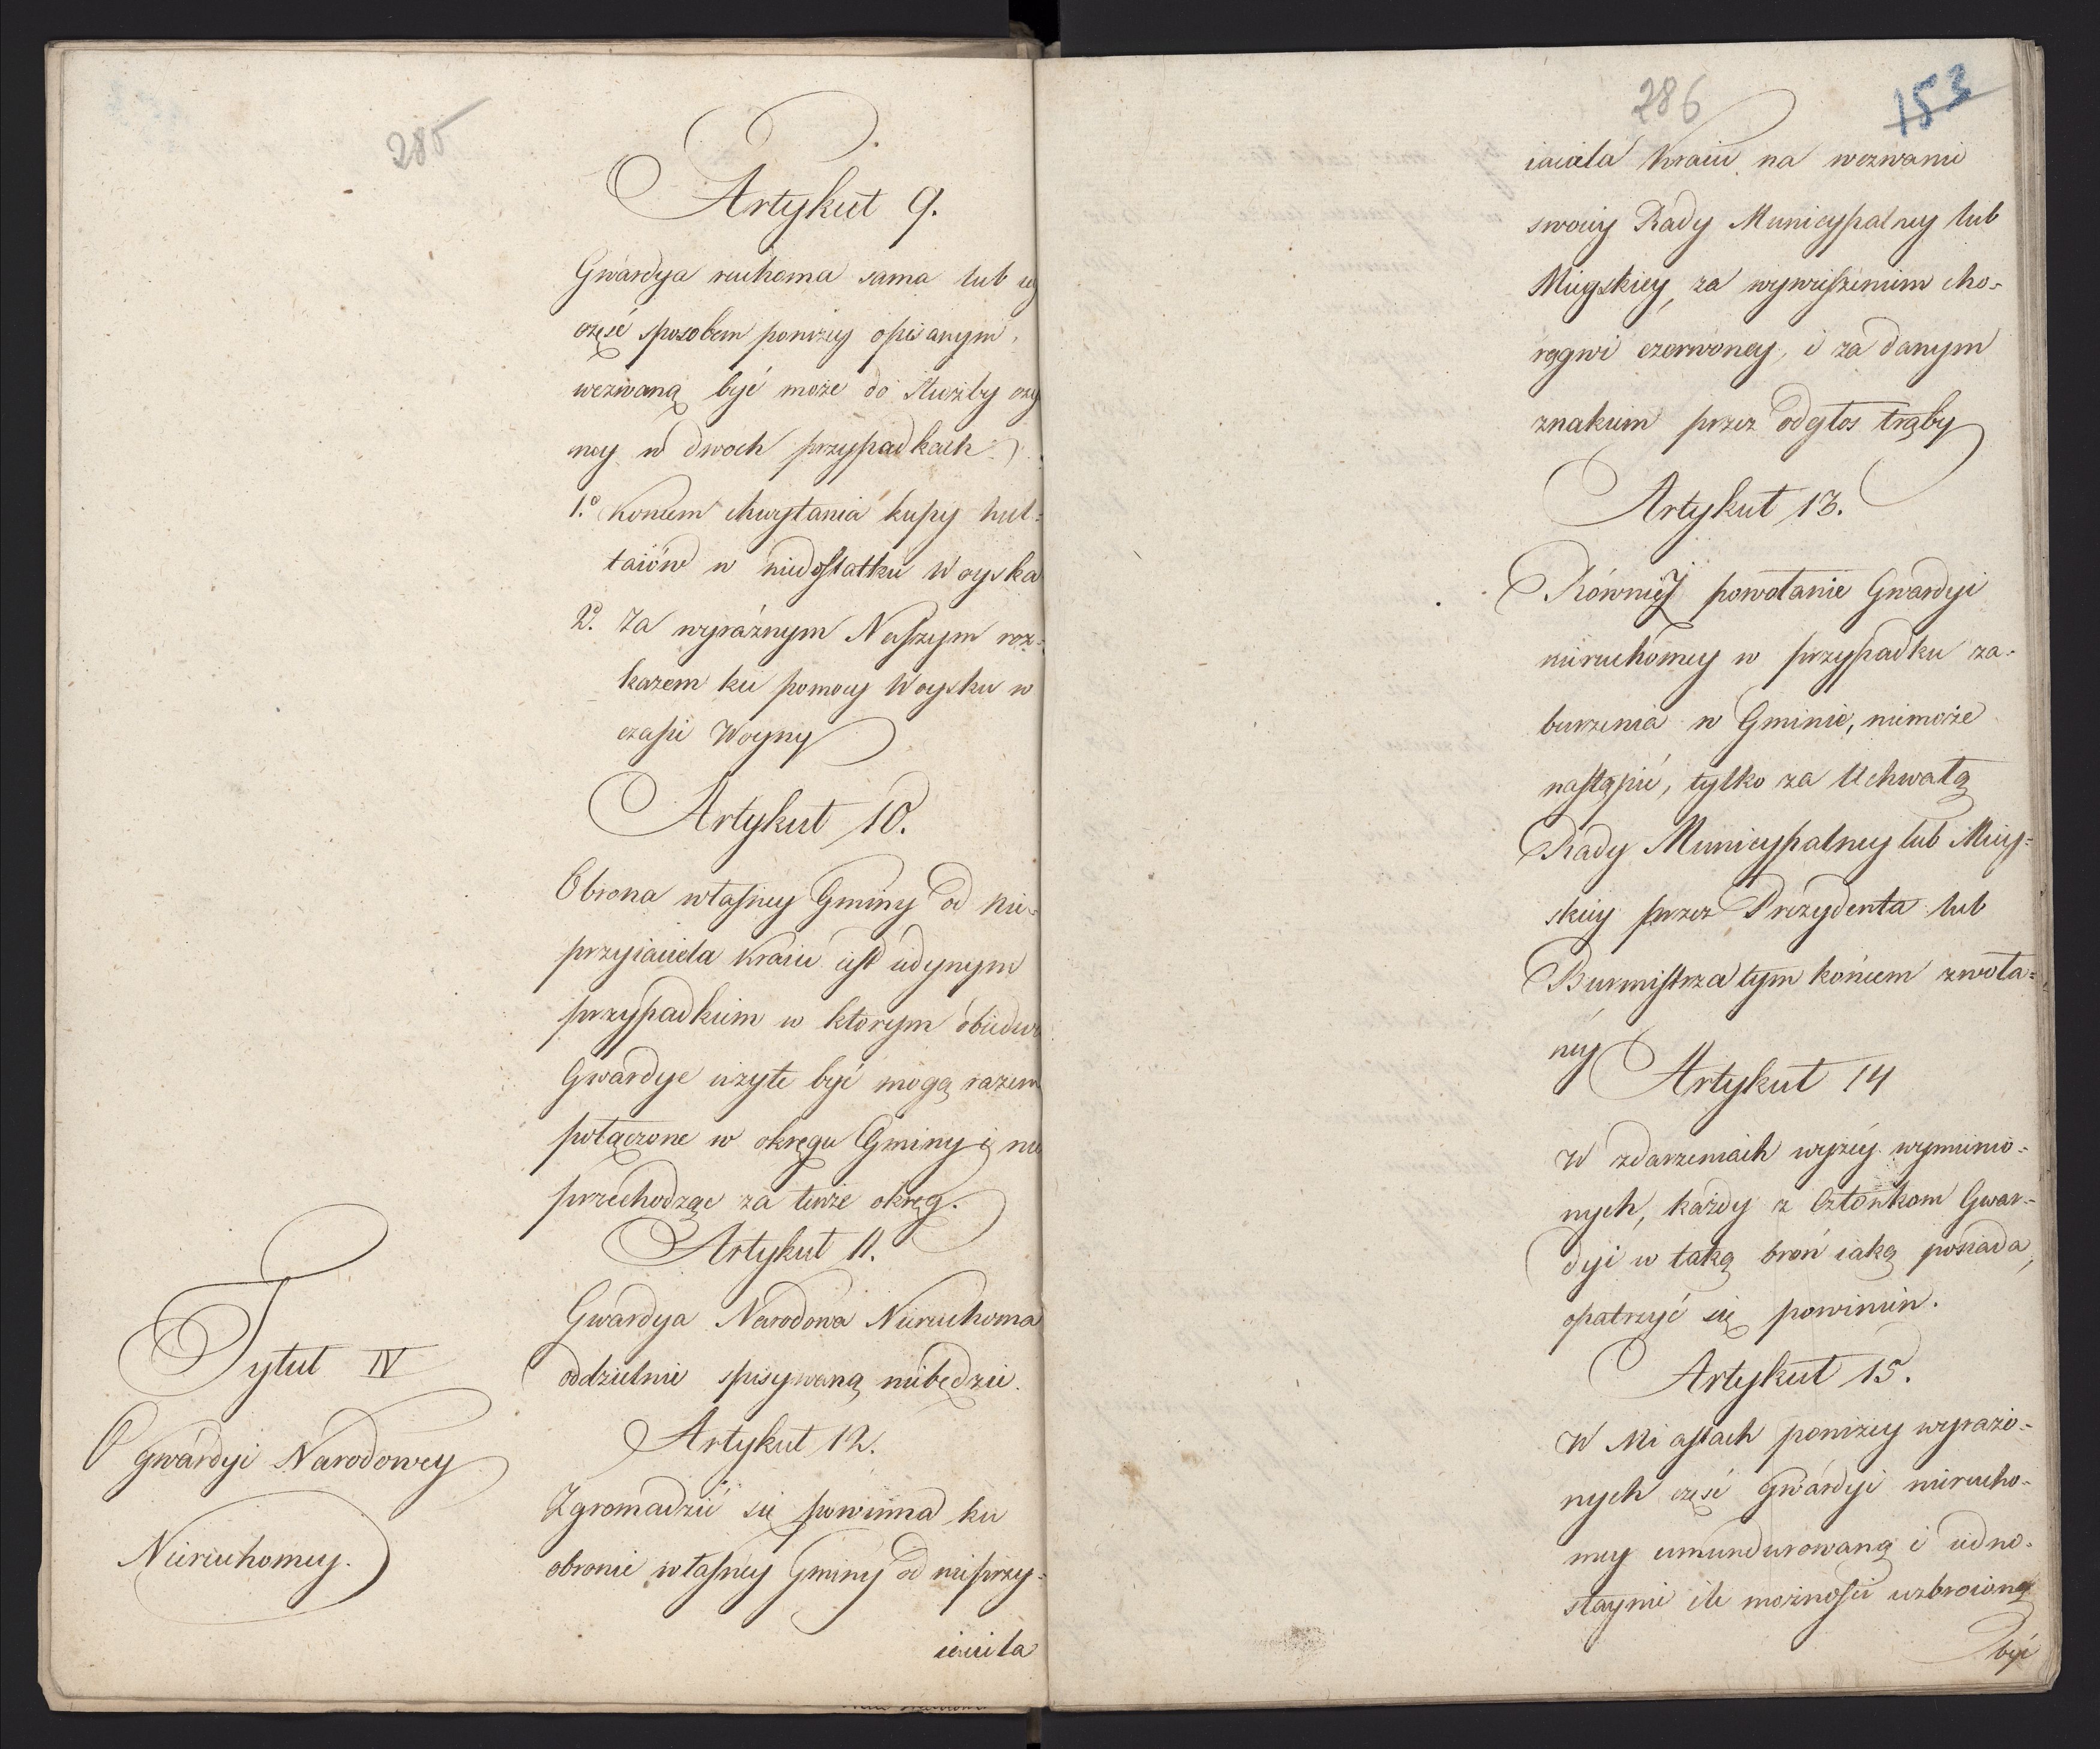 285
Artykuł 9.
Gwardya ruchoma sama lub iey
część sposobem poniżey opisanym,
wezwaną być może do służby czyn
ney w dwoch przypadkach
1.o Koncem chwytania kupy hul-
taiów w niedostatku Woyska
2.o Za wyráznym Naszym roz-
kazem ku pomocy Woysku w
czasie Woyny
Artykuł 10.
Obrona własney Gminy od nie-
przyiaciela Kraiu iest iedynym
przypadkiem w ktorym obiedwie
Gwardye użyte być mogą razem
połączone w okręgu Gminy i nie
przechodząc za tenże okręg.
Artykuł 11.
Tytuł IV
O Gwardyi Narodowey
Nieruchomey.
Gwardya Narodowa Nieruchoma
oddzielnie spisywaną niebędzie.
Artykuł 12.
Zgromadzić się powinna ku
obronie własney Gminy od nieprzy-
iaciela
286
153
iaciela Kraiu na wezwanie
swoiey Rady Municypalney lub
Mieyskiey, za wywieszeniem cho-
rągwi czerwoney, i za danym
znakiem przez odgłos trąby
Artykuł 13.
Również powołanie Gwardyi
nieruchomey w przypadku za-
burzenia w Gminie, niemoże
nastąpić, tylko za Uchwałą
Rady Municypalney lub Miey-
skiey przez Prezydenta lub
Burmistrza tym końcem zwoła-
ney
Artykuł 14
W zdarzeniach wyżey wymienio-
nych, każdy z Członkow Gwar-
dyi w taką broń iaką posiada,
opatrzyć się powinien.
Artykuł 15.
W Miastach poniżey wyrażo-
nych część Gwardyi nierucho-
mey umundurowaną i iedno-
staynie ile możności uzbroioną
być